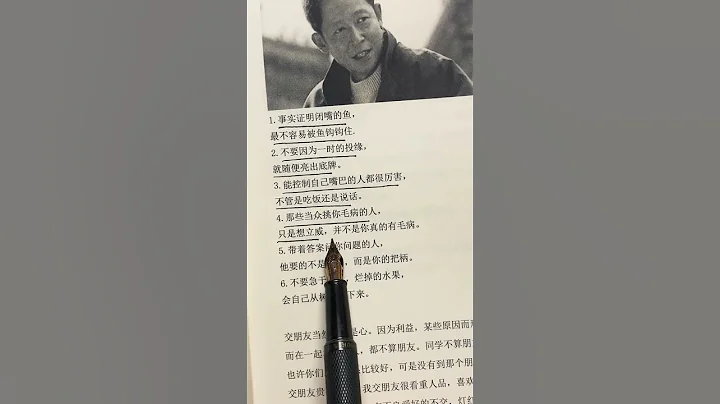 1.事实证明闭嘴的鱼,
最不容易被鱼钩钩住.
2.不要因为一时的投缘,
就随便亮出底牌。
3.能控制自己嘴巴的人都很厉害,
不管是吃饭还是说话。
4.那些当众挑你毛病的人,
只是想立威,并不是你真的有毛病。
5.带着答案 你问题的人,
他要的不是 ,而是你的把柄。
6.不要急于 ,烂掉的水果,
会自己从树 下来。
交朋友当 是心。因为利益,某些原因而
而在一起 ,都不算朋友。同学不算朋
也许你们 比较好,可是没有到那个朋
交朋友贵 我交朋友很看重人品,喜欢